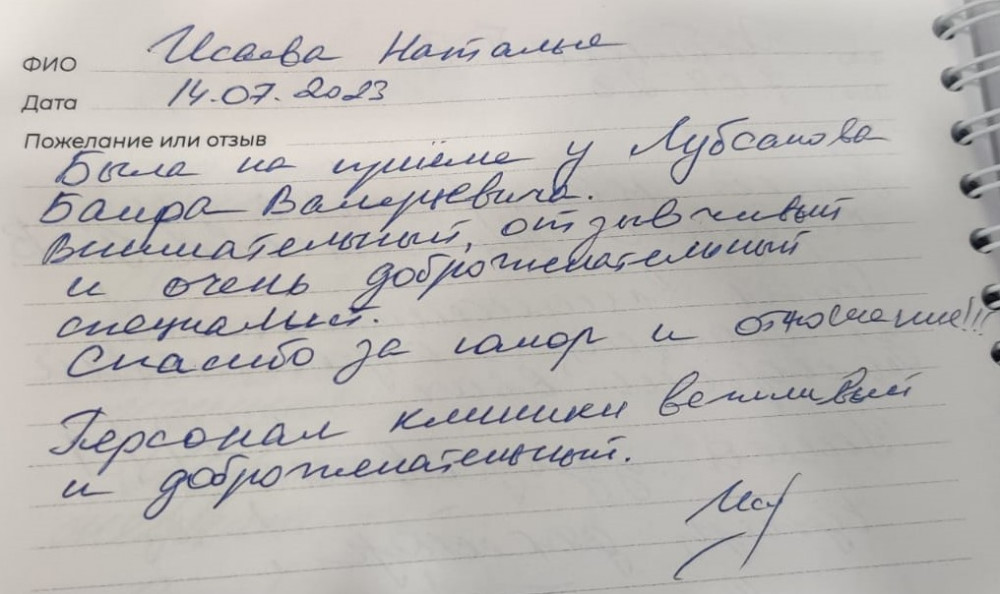 ФИО Исаева Наталья
Дата 14.07.2023
Пожелание или отзыв
Была на приёме у Лубсанова
Баира Валерьевича.
Внимательный, отзывчивый
и очень доброжелательный
специалист.
Спасибо за юмор и отношение!!!
Персонал клиники вежливый
и доброжелательный.